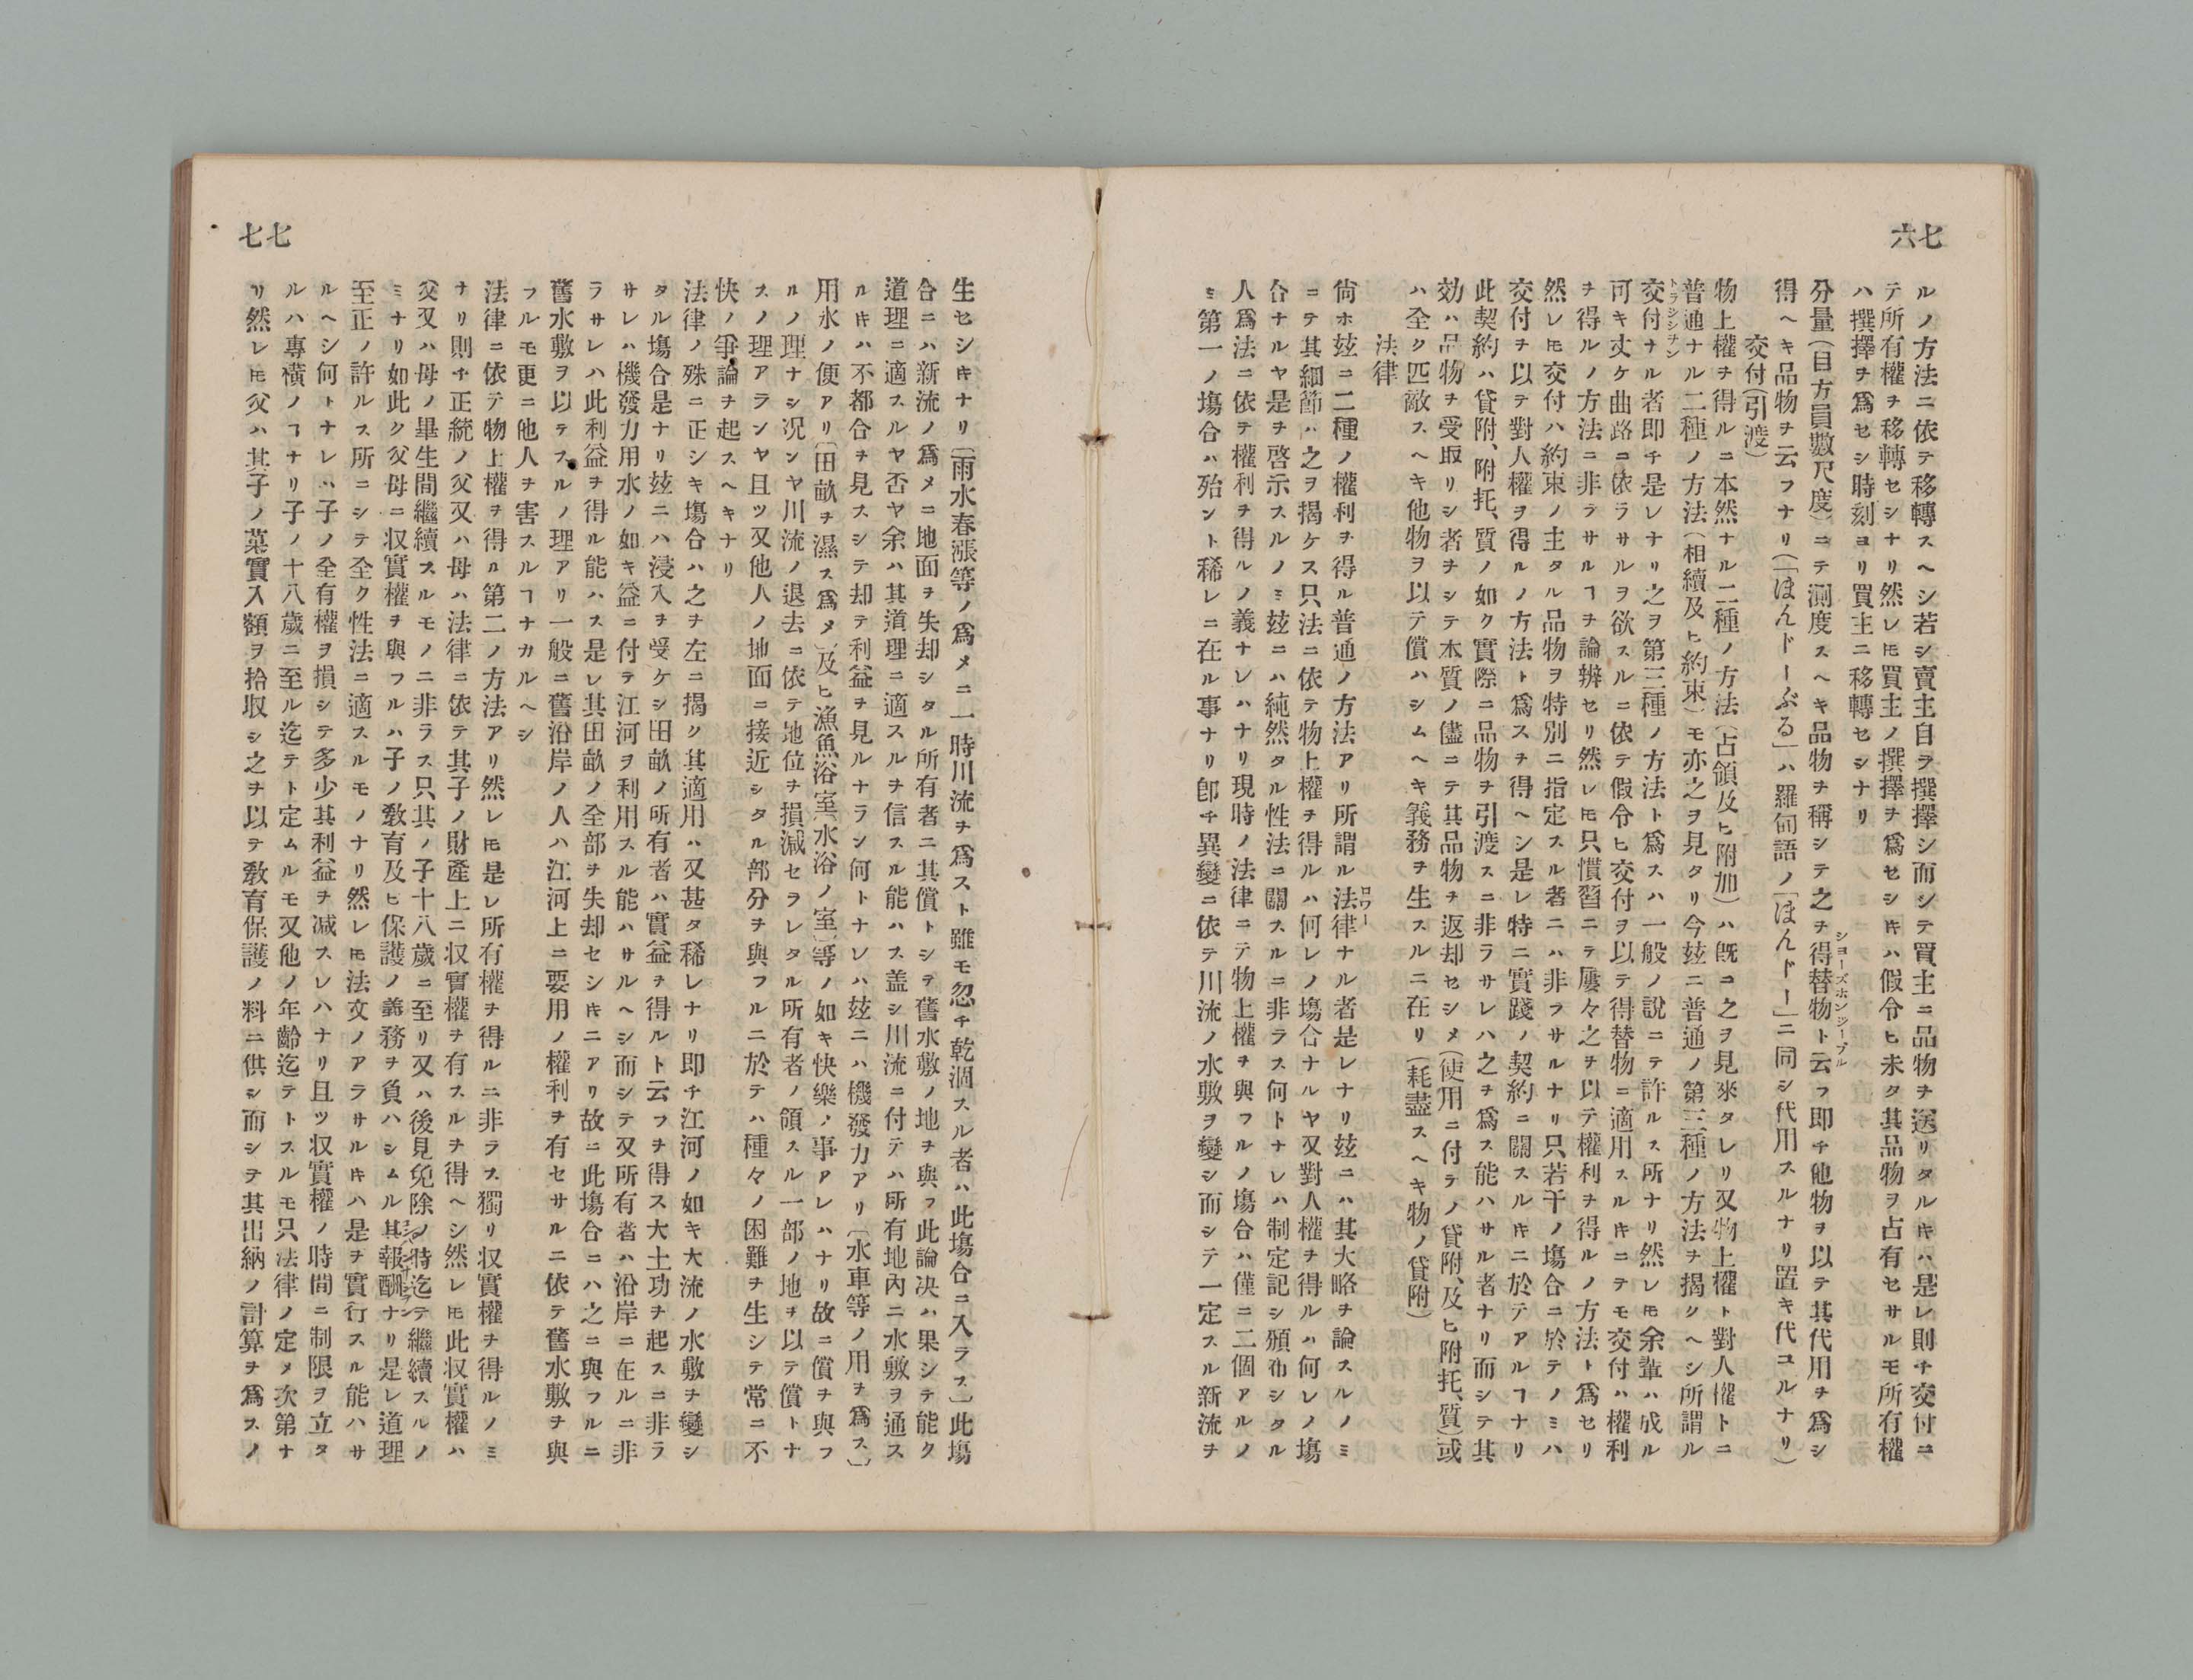 七六
ルノ方法ニ依テ移轉スヘシ若シ賣主自ラ撰擇シ而シテ買主ニ品物ヲ送リタルキハ是レ則チ交付ニ
テ所有權ヲ移轉セシナリ然レ𪜈買主ノ撰擇ヲ爲セシキハ假令ヒ未タ其品物ヲ占有セサルモ所有權
ハ撰擇ヲ爲セシ時刻ヨリ買主ニ移轉セシナリ
分量(目方員數尺度)ニテ測度スヘキ品物ヲ稱シテ之ヲ得替物ト云フ即チ他物ヲ以テ其代用ヲ爲シ
ショーズホンジーブル
得ヘキ品物ヲ云フナリ(「ほんドーぶる」ハ羅甸語ノ「ほんドー」ニ同シ代用スルナリ置キ代ユルナリ)
交付(引渡)
物上權ヲ得ルニ本然ナル二種ノ方法(占領及ヒ附加)ハ既ニ之ヲ見來タレリ又物上權ト對人權トニ
普通ナル二種ノ方法(相續及ヒ約束)モ亦之ヲ見タリ今玆ニ普通ノ第三種ノ方法ヲ揭クヘシ所謂ル
トラジシヂン
交付ナル者即チ是レナリ之ヲ第三種ノ方法ト爲スハ一般ノ說ニテ許ルス所ナリ然レ𪜈余輩ハ成ル
可キ丈ケ曲路ニ依ラサルヲ欲スルニ依テ假令ヒ交付ヲ以テ得替物ニ適用スルキニテモ交付ハ權利
ヲ得ルノ方法ニ非ラサルヿヲ論辨セリ然レ𪜈只慣習ニテ屢々之ヲ以テ權利ヲ得ルノ方法ト爲セリ
然レ𪜈交付ハ約束ノ主タル品物ヲ特別ニ指定スル者ニハ非ラサルナリ只若干ノ塲合ニ於テノミハ
交付ヲ以テ對人權ヲ得ルノ方法ト爲スヲ得ヘシ是レ特ニ實踐ノ契約ニ關スルキニ於テアルヿナリ
此契約ハ貸附、附托、質ノ如ク實際ニ品物ヲ引渡スニ非ラサレハ之ヲ爲ス能ハサル者ナリ而シテ其
効ハ品物ヲ受取リシ者ヲシテ本質ノ儘ニテ其品物ヲ返却セシメ(使用ニ付テノ貸附、及ヒ附托、質)或
ハ全ク匹敵スヘキ他物ヲ以テ償ハシムヘキ義務ヲ生スルニ在リ(耗盡スヘキ物ノ貸附)
法律
ロワー
尙ホ玆ニ二種ノ權利ヲ得ル普通ノ方法アリ所謂ル法律ナル者是レナリ玆ニハ其大略ヲ論スルノミ
ニテ其細節ハ之ヲ揭ケス只法ニ依テ物上權ヲ得ルハ何レノ塲合ナルヤ又對人權ヲ得ルハ何レノ塲
合ナルヤ是ヲ啓示スルノミ玆ニハ純然タル性法ニ關スルニ非ラス何トナレハ制定記シ頒布シタル
人爲法ニ依テ權利ヲ得ルノ義ナレハナリ現時ノ法律ニテ物上權ヲ與フルノ塲合ハ僅ニ二個アルノ
ミ第一ノ塲合ハ殆ント稀レニ在ル事ナリ卽チ異變ニ依テ川流ノ水敷ヲ變シ而シテ一定スル新流ヲ
七七
生セシキナリ〔雨水春漲等ノ爲メニ一時川流ヲ爲スト雖モ忽チ乾涸スル者ハ此塲合ニ入ラス〕此塲
合ニハ新流ノ爲メニ地面ヲ失却シタル所有者ニ其償トシテ舊水敷ノ地ヲ與フ此論决ハ果シテ能ク
道理ニ適スルヤ否ヤ余ハ其道理ニ適スルヲ信スル能ハス盖シ川流ニ付テハ所有地內ニ水敷ヲ通ス
ルキハ不都合ヲ見スシテ却テ利益ヲ見ルナラン何トナレハ玆ニハ機發力アリ〔水車等ノ用ヲ爲ス〕
用水ノ便アリ〔田畝ヲ濕ス爲メ〕及ヒ漁魚浴室〔水浴ノ室〕等ノ如キ快樂ノ事アレハナリ故ニ償ヲ與フ
ルノ理ナシ况ンヤ川流ノ退去ニ依テ地位ヲ損減セラレタル所有者ノ領スル一部ノ地ヲ以テ償トナ
スノ理アランヤ且ツ又他人ノ地面ニ接近シタル部分ヲ與フルニ於テハ種々ノ困難ヲ生シテ常ニ不
快ノ爭論ヲ起スヘキナリ
法律ノ殊ニ正シキ塲合ハ之ヲ左ニ揭ク其適用ハ又甚タ稀レナリ即チ江河ノ如キ大流ノ水敷ヲ變シ
タル塲合是ナリ玆ニハ浸入ヲ受ケシ田畝ノ所有者ハ實益ヲ得ルト云フヲ得ス大土功ヲ起スニ非ラ
サレハ機發力用水ノ如キ益ニ付テ江河ヲ利用スル能ハサルヘシ而シテ又所有者ハ沿岸ニ在ルニ非
ラサレハ此利益ヲ得ル能ハス是レ其田畝ノ全部ヲ失却セシキニアリ故ニ此塲合ニハ之ニ與フルニ
舊水敷ヲ以テスルノ理アリ一般ニ舊沿岸ノ人ハ江河上ニ要用ノ權利ヲ有セサルニ依テ舊水敷ヲ與
フルモ更ニ他人ヲ害スルヿナカルヘシ
法律ニ依テ物上權ヲ得ル第二ノ方法アリ然レ𪜈是レ所有權ヲ得ルニ非ラス獨リ収實權ヲ得ルノミ
ナリ則チ正統ノ父又ハ母ハ法律ニ依テ其子ノ財產上ニ収實權ヲ有スルヲ得ヘシ然レ𪜈此収實權ハ
父又ハ母ノ畢生間繼續スルモノニ非ラス只其ノ子十八歲ニ至リ又ハ後見免除ノ時迄テ繼續スルノ
ミナリ如此ク父母ニ収實權ヲ與フルハ子ノ敎育及ヒ保護ノ義務ヲ負ハシムル其報酬ナリ是レ道理
至正ノ許ルス所ニシテ全ク性法ニ適スルモノナリ然レ𪜈法文ノアラサルキハ是ヲ實行スル能ハサ
ルヘシ何トナレハ子ノ全有權ヲ損シテ多少其利益ヲ減スレハナリ且ツ収實權ノ時間ニ制限ヲ立タ
ルハ專橫ノヿナリ子ノ十八歲ニ至ル迄テト定ムルモ又他ノ年齡迄テトスルモ只法律ノ定メ次第ナ
リ然レ𪜈父ハ其子ノ菓實入額ヲ拾収シ之ヲ以テ敎育保護ノ料ニ供シ而シテ其出納ノ計算ヲ爲スノ